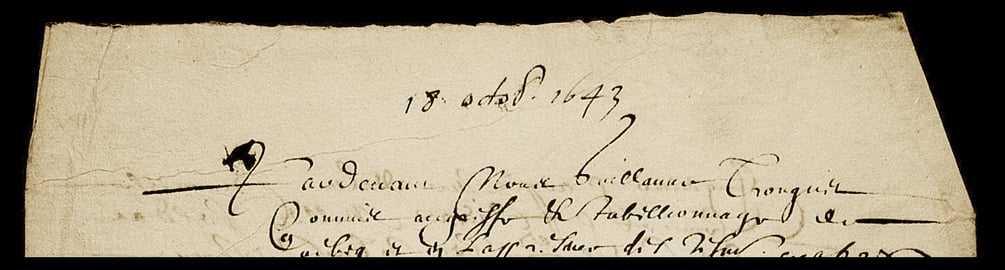 18 octob. 1643
Pardevant Nous Guillaume Tronquet
Commis au greffe & tabellionnage de
Quebeq et